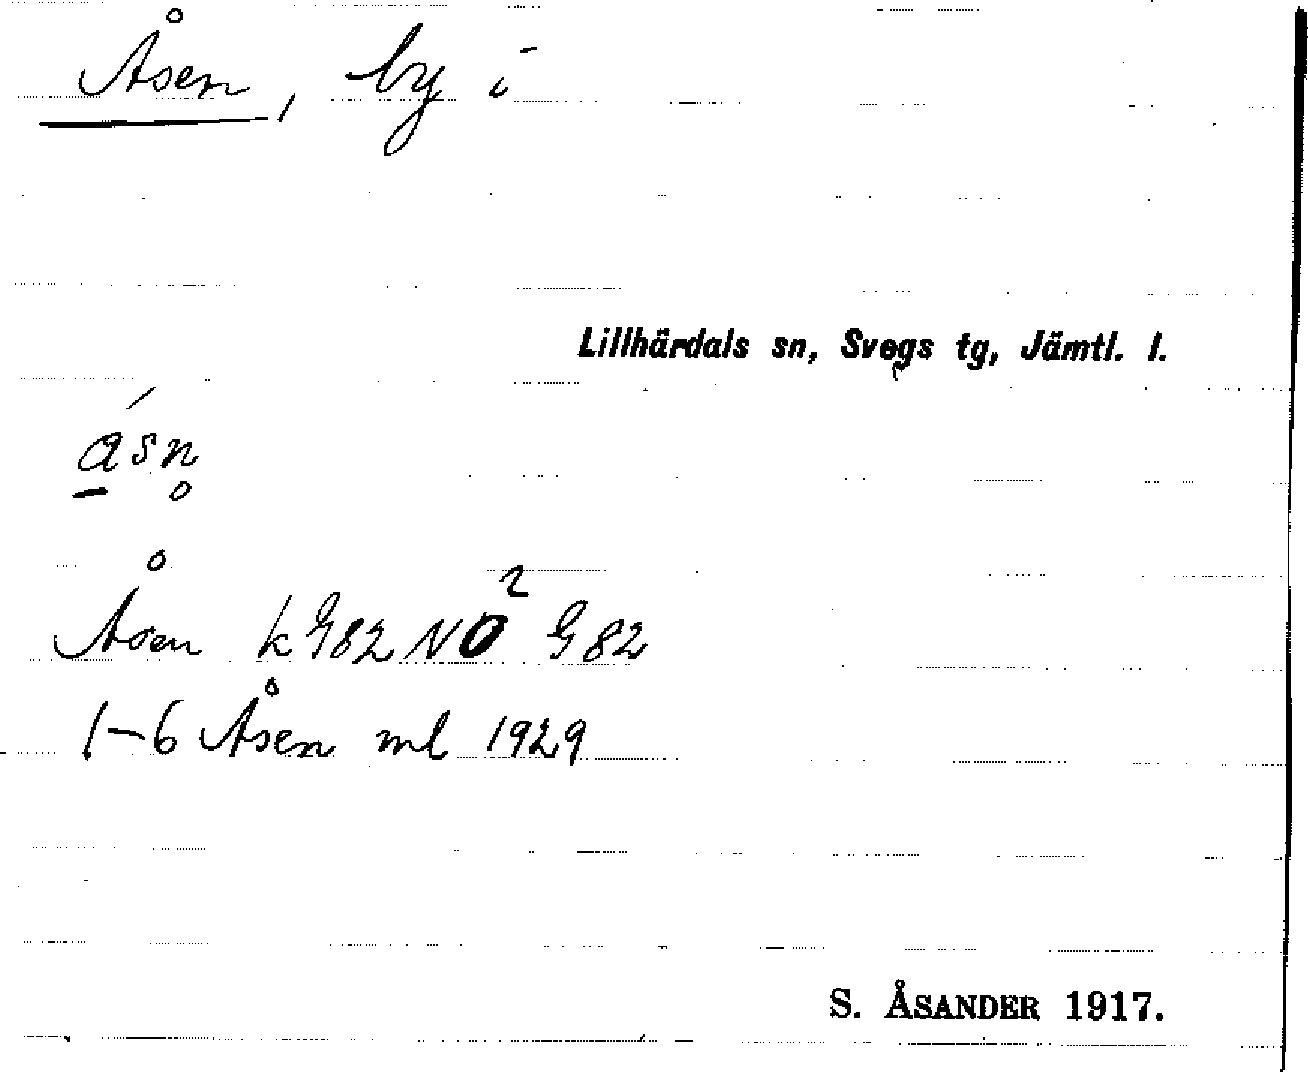 Åsen, by i
Lillhärdals sn, Svegs tg, Jämtl. l.
ásn̥
Åsen k G82 NO² G82
1-6 Åsen ml 1929
S. ÅSANDER 1917.